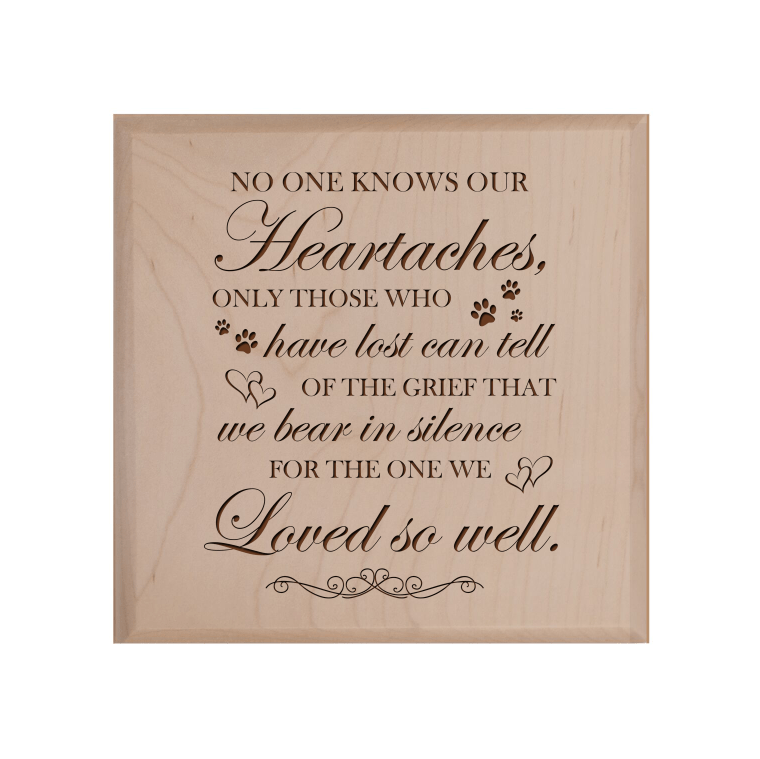 NO ONE KNOWS OUR
Heartaches,
ONLY THOSE WHO
have lost can tell
OF THE GRIEF THAT
we bear in silence
FOR THE ONE WE
Loved so well.